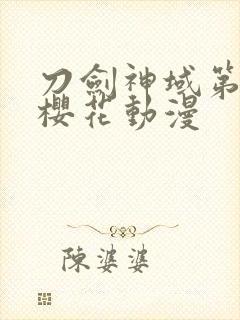 刀劍神域第
櫻花動漫
陳婆婆